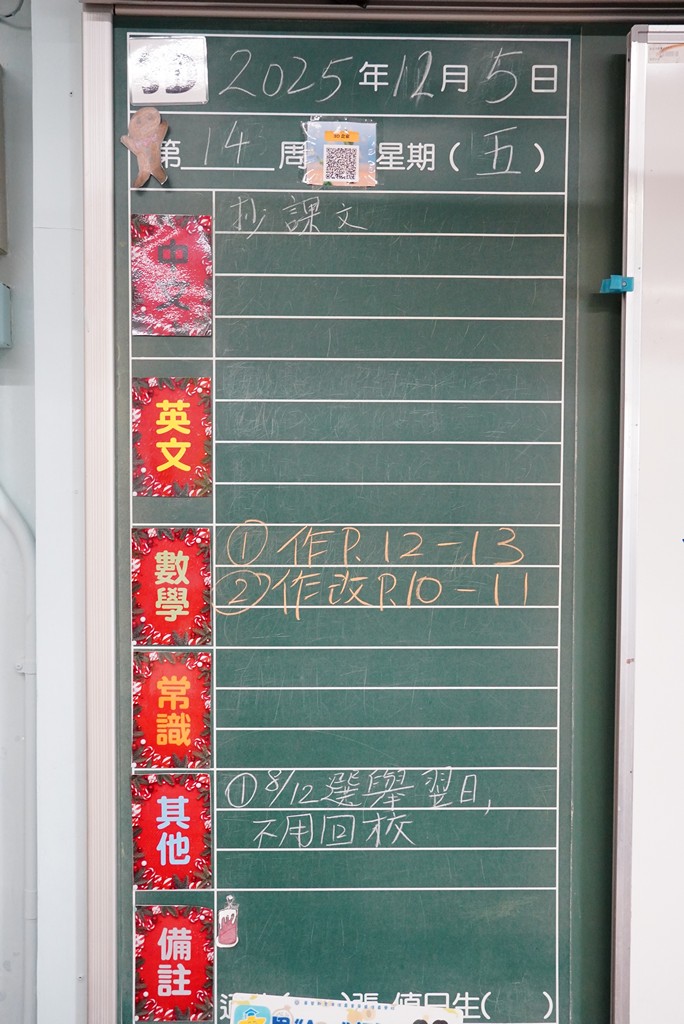 3D 2025年12月5日
第14周 星期(五)
中文 抄課文
英文
數學 ①作P.12-13
②作改P.10-11
常識
其他 ①8/12選舉翌日,
不用回校
備註